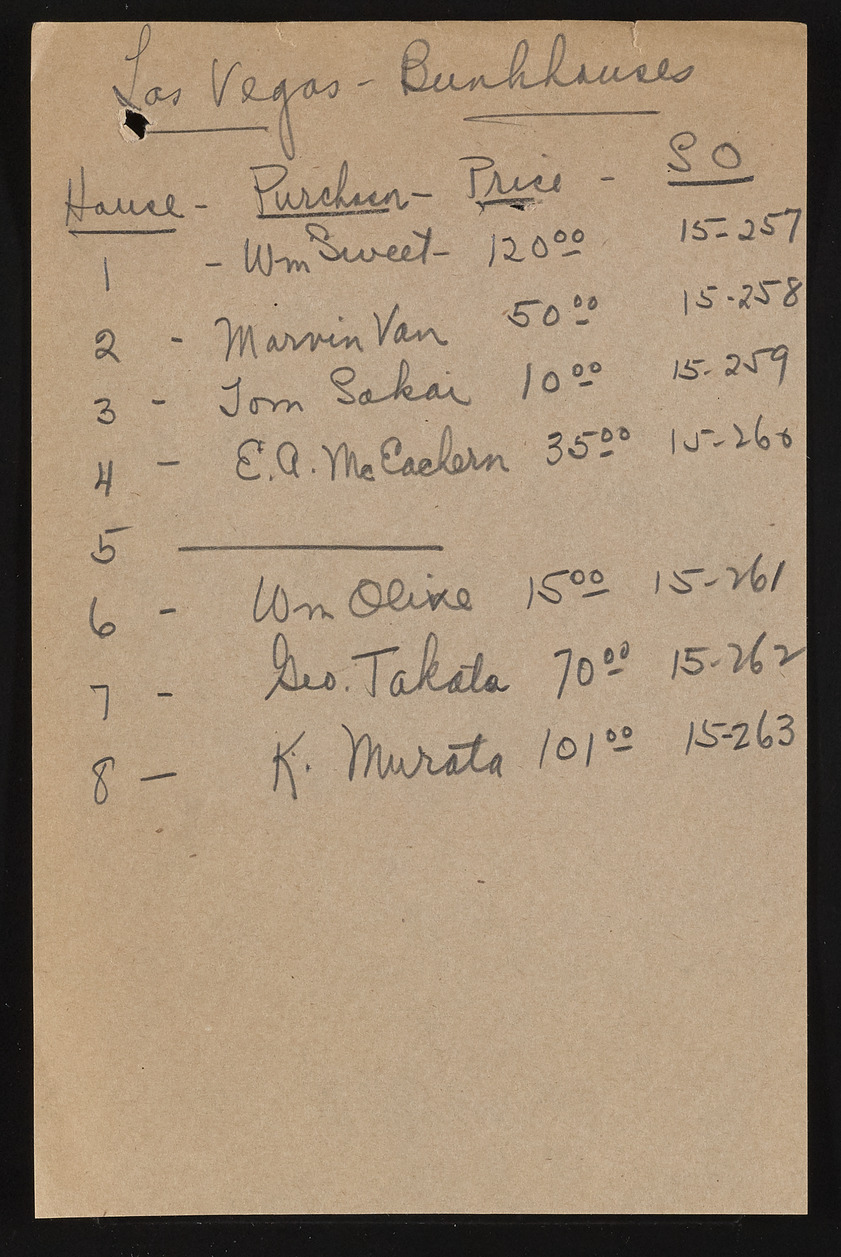 Las Vegas - Bunkhouses
House - Purchaser - Price - S O
1 - Wm Sweet - 120 00 15-257
2 - Marvin Van 50 00 15-258
3 - Tom Sakai 10 00 15-259
4 - E.A. McEachern 35 00 15-260
5
6 - Wm Olive 15 00 15-261
7 - Geo. Takata 70 00 15-262
8 - K. Murata 101 00 15-263